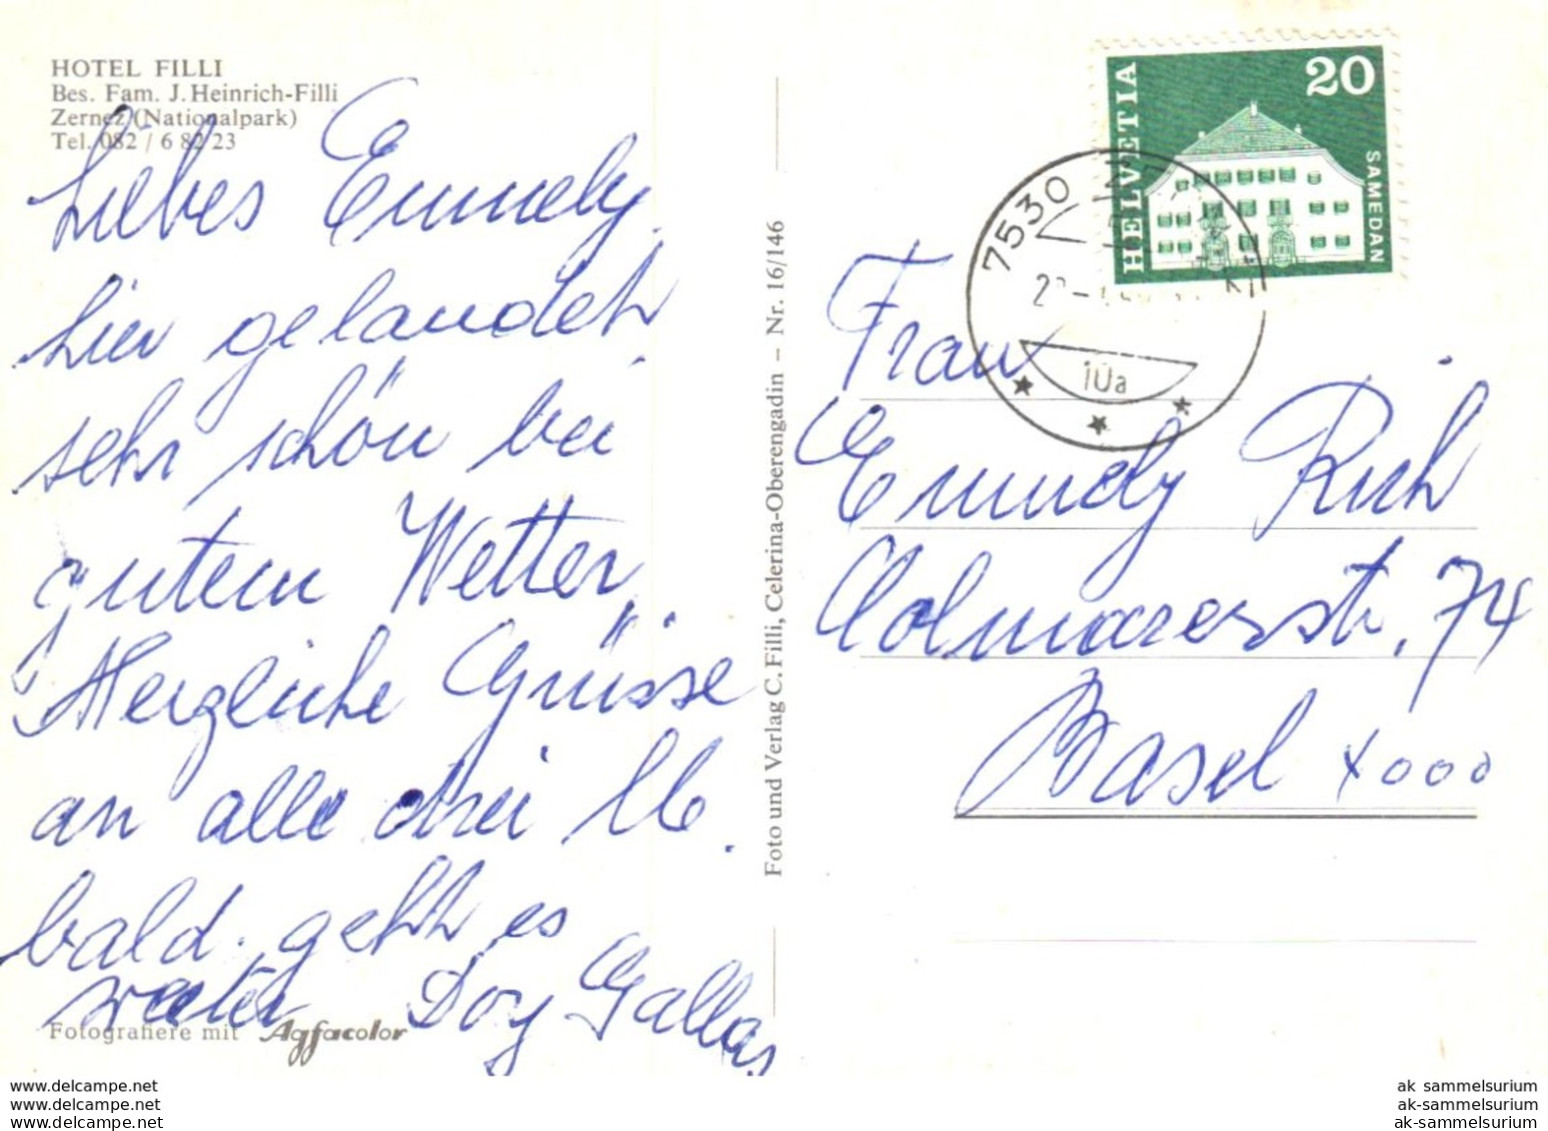 HOTEL FILLI
Bes. Fam. J. Heinrich-Filli
Zernez (Nationalpark)
Tel. 082 / 6 82 23
Liebes Emmely.
hier gelandet
sehr schön bei
gutem Wetter
Herzliche Grüsse
an alle drei
bald geht es
weiter Dory Gallas
Fotografiere mit Agfacolor
Foto und Verlag C. Filli, Celerina-Oberengadin – Nr. 16/146
HELVETIA
20
SAMEDAN
7530
10a
Frau
Emmely Rich
Colmarerstr. 74
Basel 4000
www.delcampe.net
www.delcampe.net
www.delcampe.net
ak_sammelsurium
ak-sammelsurium
ak-sammelsurium